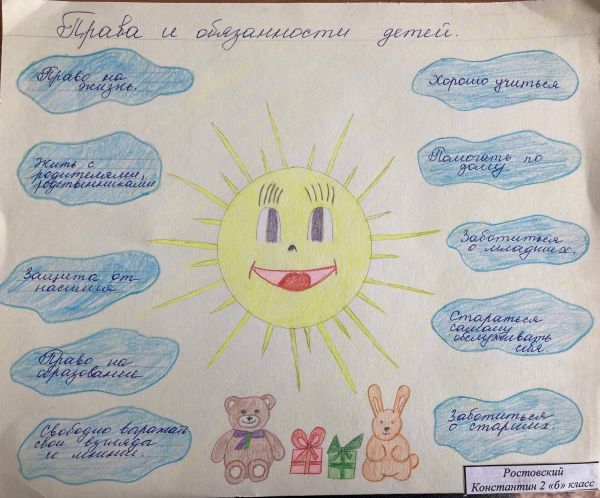 Права и обязанности детей.
Право на
жизнь.
Жить с
родителями,
родственниками
Защита от
насилия
Право на
образование
Свободно выражать
свои взгляды
и мнение.
Хорошо учиться
Помогать по
дому
Заботиться
о младших.
Стараться
самому
обслуживать
себя.
Заботиться
о старших.
Ростовский
Константин 2 «б» класс